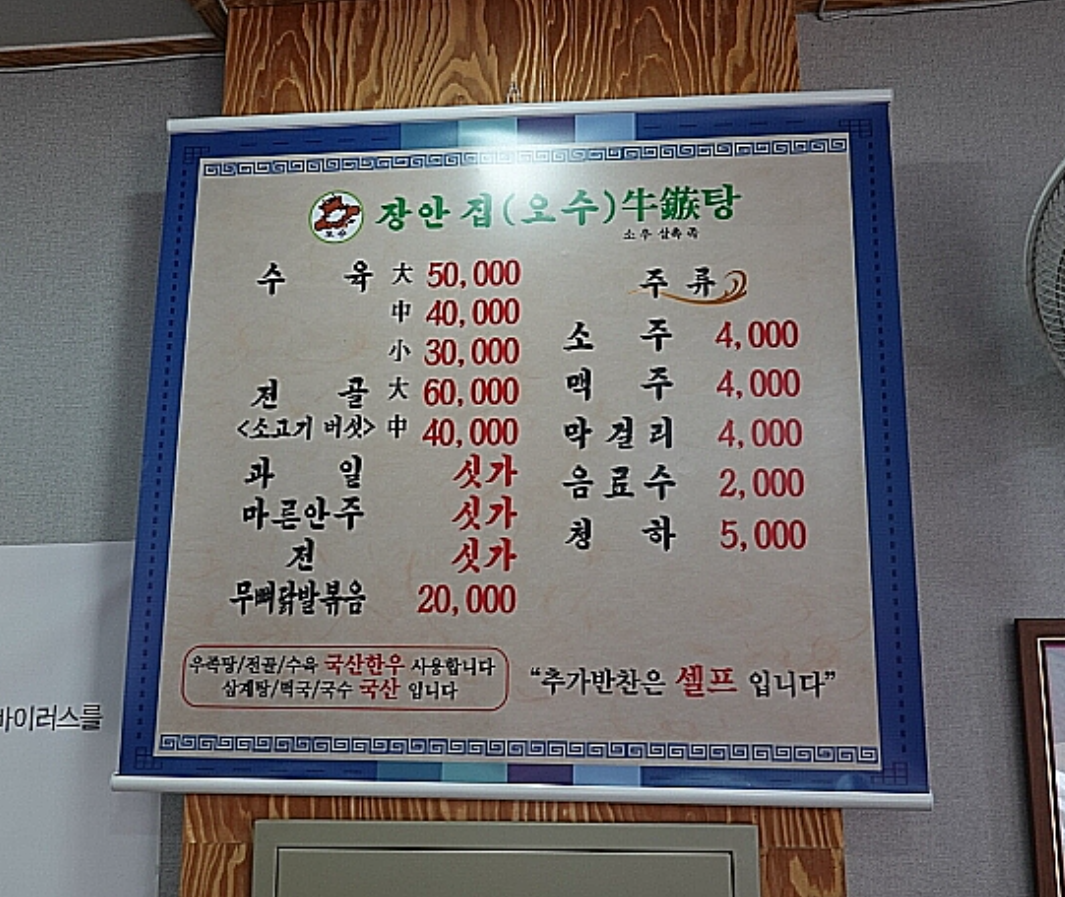 장안집(오수)牛鏃탕
소 우 살촉 족
수 육 大 50,000
中 40,000
小 30,000
전 골 大 60,000
<소고기 버섯> 中 40,000
과 일 싯가
마른안주 싯가
전 싯가
무뼈닭발볶음 20,000
주 류
소 주 4,000
맥 주 4,000
막 걸 리 4,000
음 료 수 2,000
청 하 5,000
우족탕/전골/수육 국산한우 사용합니다
삼계탕/떡국/국수 국산 입니다
“추가반찬은 셀프 입니다”
바이러스를